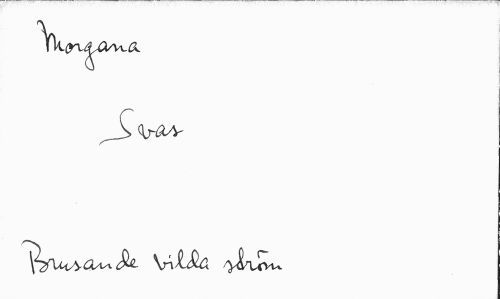 Morgana
Svas
Brusande vilda ström